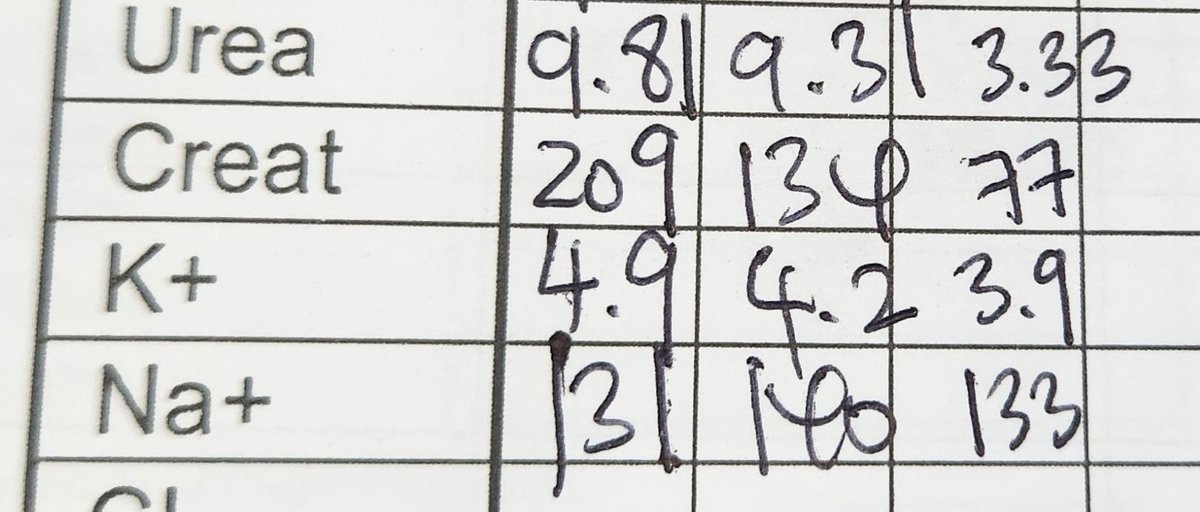 Urea 9.81 9.31 3.33
Creat 209 134 77
K+ 4.9 4.2 3.9
Na+ 131 140 133